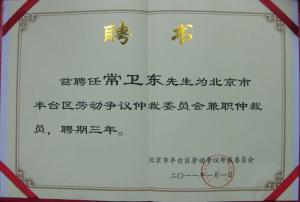 聘书
兹聘任常卫东先生为北京市
丰台区劳动争议仲裁委员会兼职仲裁
员，聘期三年。
北京市丰台区劳动争议仲裁委员会
二〇一一年一月一日